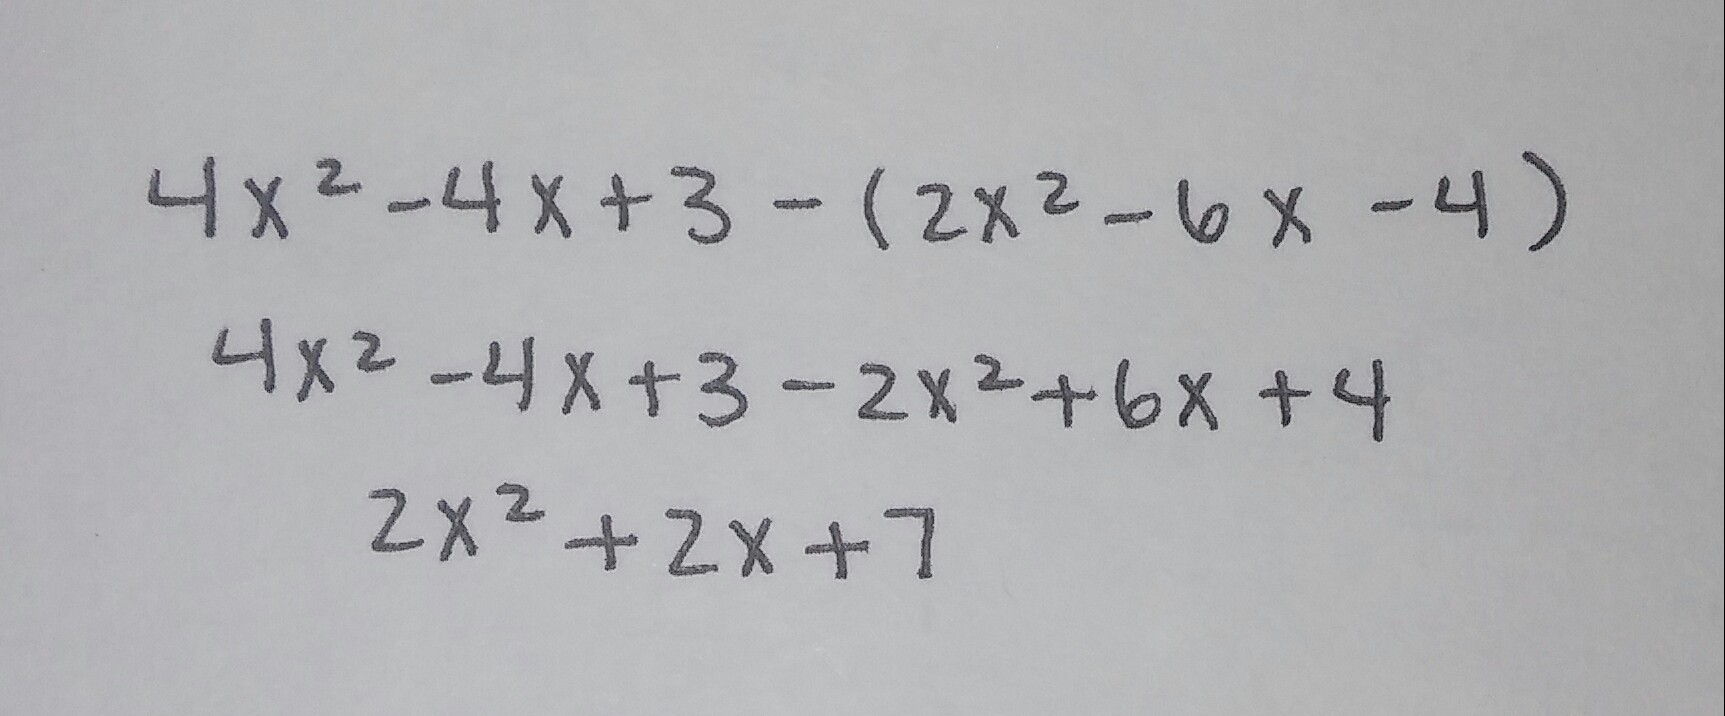 4x² -4x+3 - (2x² -6x -4)
4x² -4x+3 -2x²+6x +4
2x² +2x+7